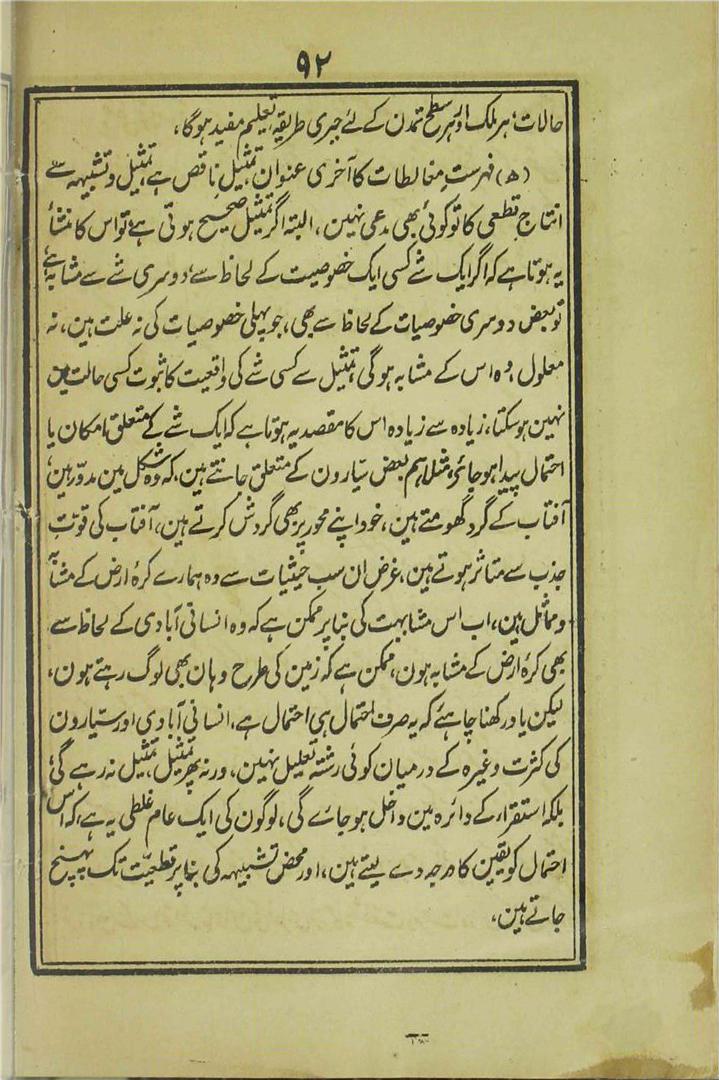 ۹۲
حالات، ہر ملک اور ہر سطح تمدن کے لئے جبری طریقۂ تعلیم مفید ہوگا،
(ھ) فہرست مغالطات کا آخری عنوان تمثیلِ ناقص ہے، تمثیل و تشبیہہ سے
انتاجِ قطعی کا تو کوئی بھی مدعی نہین، البتہ اگر تمثیل صحیح ہوتی ہے تو اس کا منشأ
یہ ہوتا ہے کہ اگر ایک شے کسی ایک خصوصیت کے لحاظ سے، دوسری شے سے مشابہ ہے
تو بعض دوسری خصوصیات کے لحاظ سے بھی، جو پہلی خصوصیات کی نہ علت ہین، نہ
معلول، وہ اس کے مشابہ ہوگی، تمثیل سے کسی شے کی واقعیت کا ثبوت کسی حالت مین
نہین ہوسکتا، زیادہ سے زیادہ اس کا مقصد یہ ہوتا ہے کہ ایک شے کے متعلق امکان یا
احتمال پیدا ہوجائے، مثلاً ہم بعض سیّارون کے متعلق جانتے ہین، کہ وہ شکل مین مدوّر ہین،
آفتاب کے گرد گھومتے ہین، خود اپنے محور پر بھی گردش کرتے ہین، آفتاب کی قوتِ
جذب سے متاثر ہوتے ہین، غرض ان سب حیثیات سے وہ ہمارے کرۂ ارض کے مشابہ
و مماثل ہین، اب اس مشابہت کی بنا پر ممکن ہے کہ وہ انسانی آبادی کے لحاظ سے
بھی کرۂ ارض کے مشابہ ہون، ممکن ہے کہ زمین کی طرح وہان بھی لوگ رہتے ہون،
لیکن یاد رکھنا چاہئے کہ یہ صرف احتمال ہی احتمال ہے، انسانی آبادی اور سیّارون
کی کثرت وغیرہ کے درمیان کوئی رشتۂ تعلیل نہین، ورنہ پھر تمثیل، تمثیل نہ رہے گی
بلکہ استقراء کے دائرہ مین داخل ہوجائے گی، لوگون کی ایک عام غلطی یہ ہے، کہ اس
احتمال کو یقین کا درجہ دے لیتے ہین، اور محض تشبیہہ کی بنا پر قطعیّت تک پہنچ
جاتے ہین،